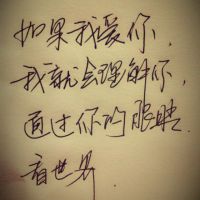 如果我爱你，
我就会理解你，
通过你的眼睛.
看世界.